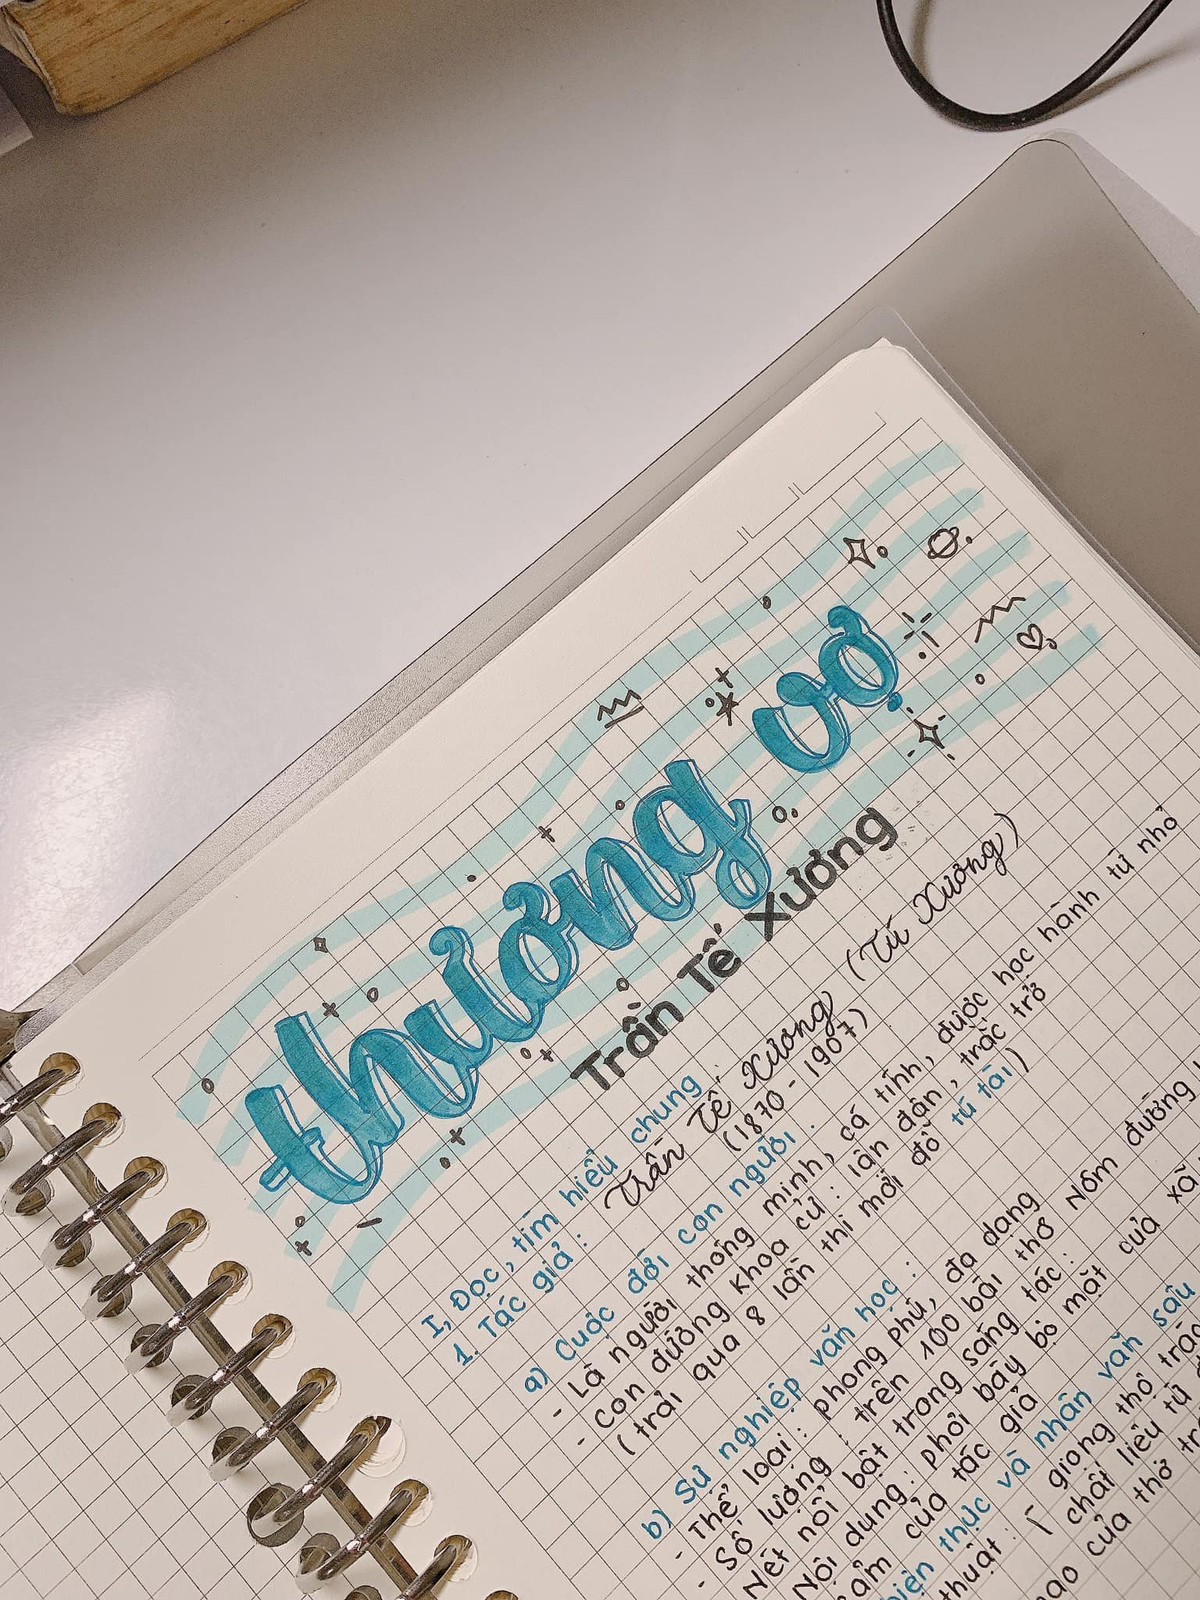 thương vợ
Trần Tế Xương
I, Đọc, tìm hiểu chung
1. Tác giả: Trần Tế Xương (Tú Xương)
(1870 - 1907)
a) Cuộc đời con người:
- Là người thông minh, cá tính, được học hành từ nhỏ
- Con đường khoa cử: lận đận, trắc trở
(trải qua 8 lần thi mới đỗ tú tài)
b) Sự nghiệp văn học:
- Thể loại: phong phú, đa dạng
- Số lượng: trên 100 bài thơ Nôm đường
Nét nổi bật trong sáng tác:
Nội dung: phơi bày bộ mặt của xã
cảm của tác giả
hiện thực và nhân văn sâu
thuật: giọng thơ
chất liệu từ
của thơ